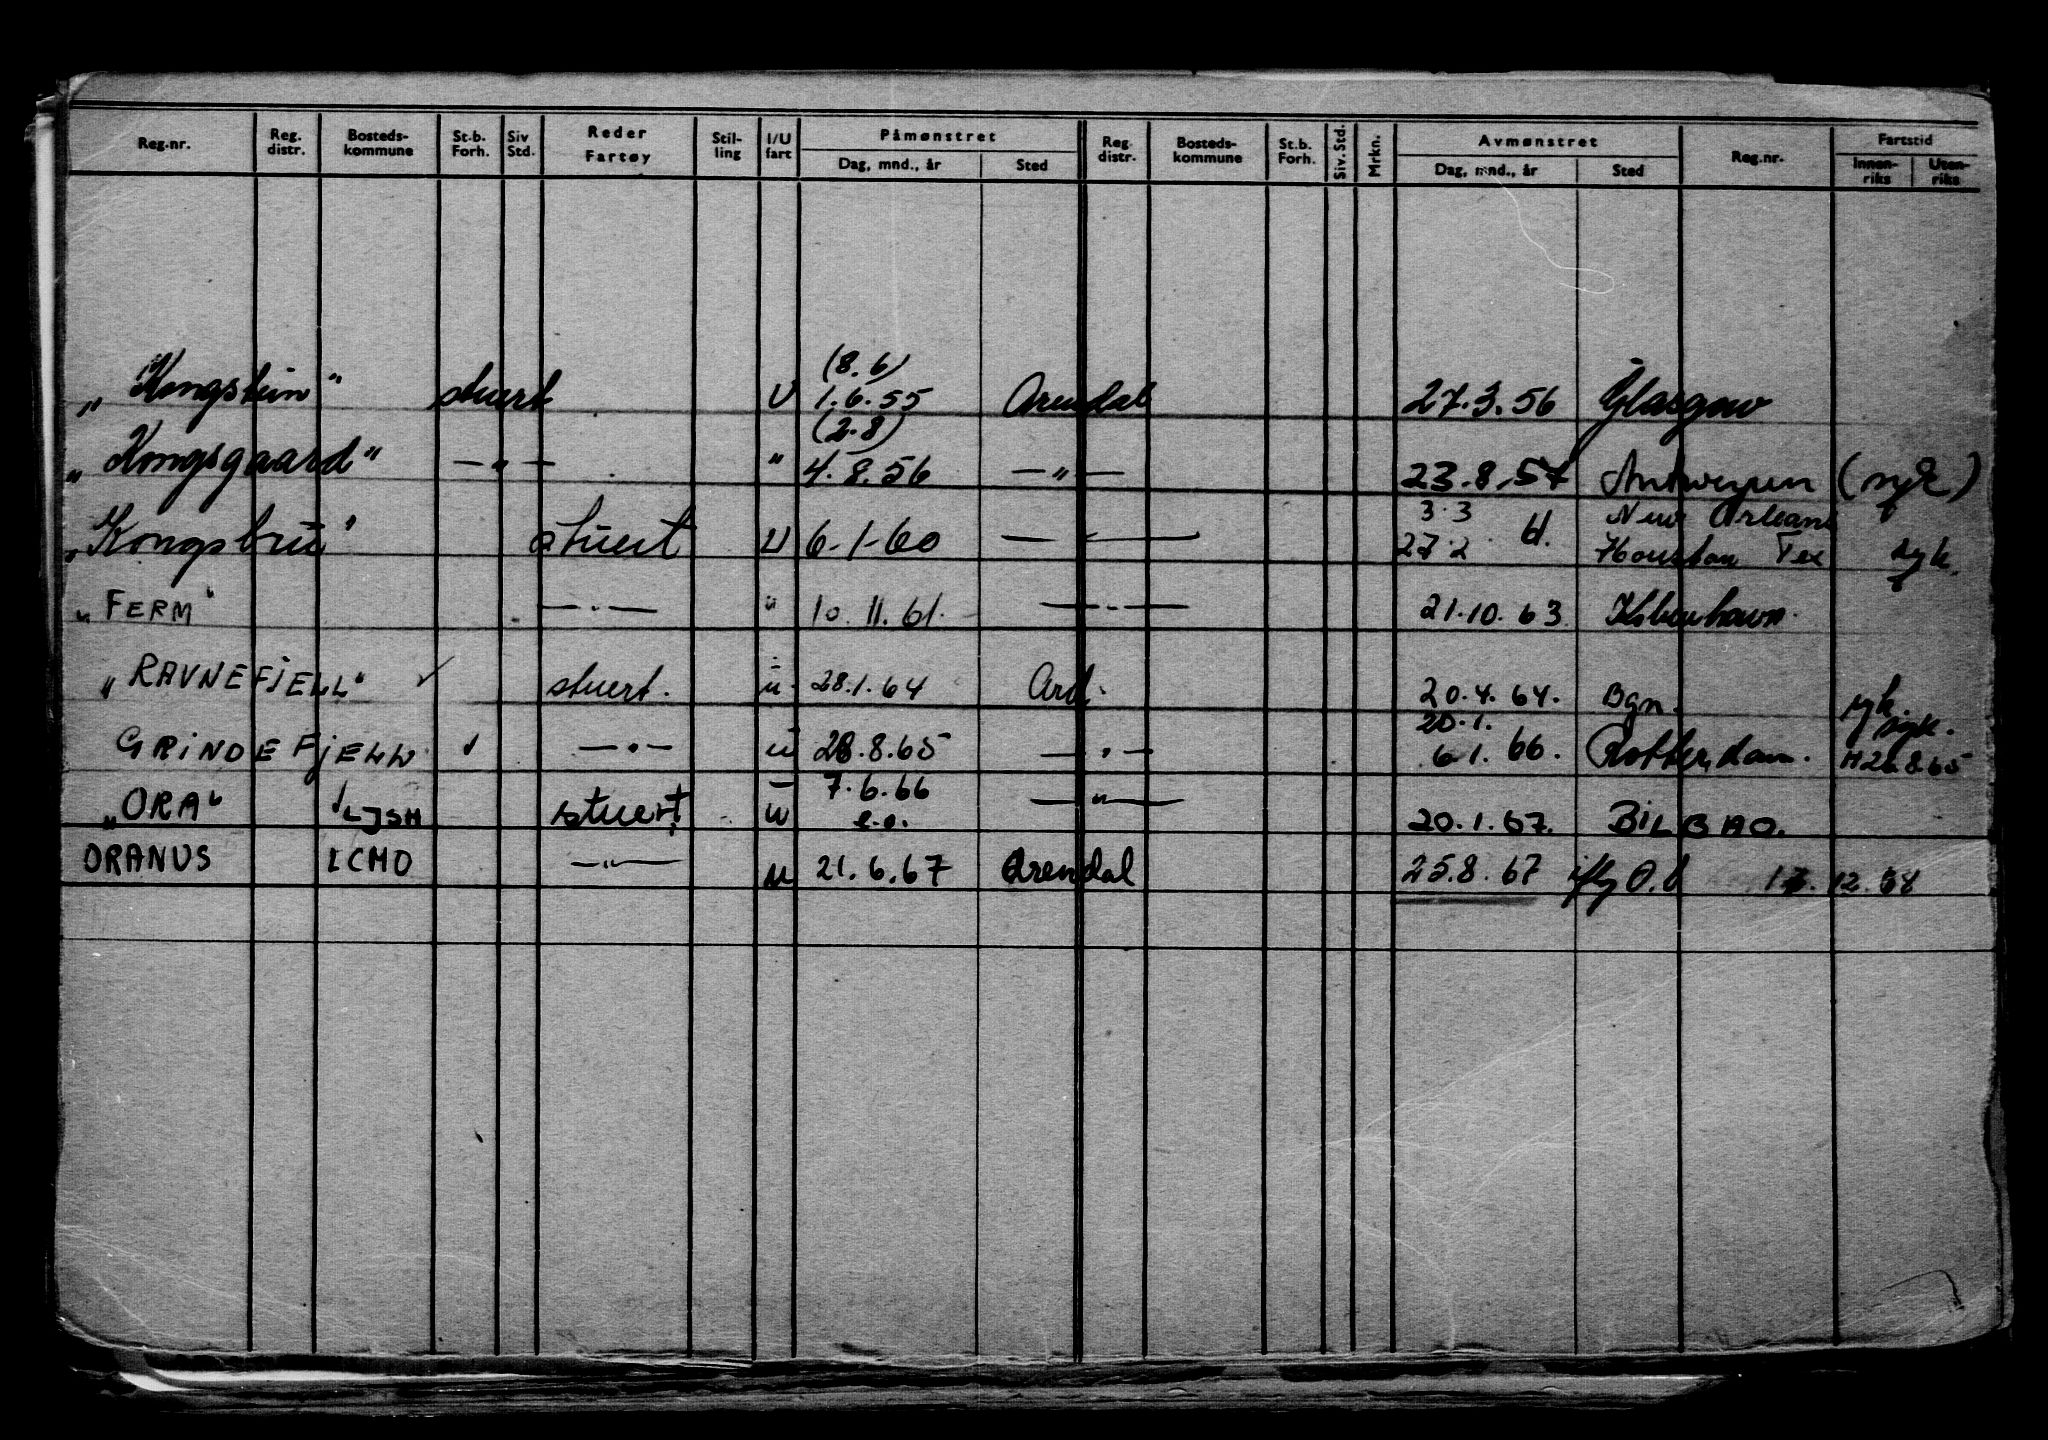 Reg.nr. Reg. distr. Bosteds-kommune St.b. Forh. Siv Std. Reder Fartøy Stil-ling I/U fart Påmønstret Dag, mnd., år Sted Reg. distr. Bosteds-kommune St.b. Forh. Siv. Std. Mrkn. Avmønstret Dag, mnd., år Sted Reg.nr. Fartstid Innen-riks Uten-riks
(8.6)
„Kongstein" stuert U 1.6.55 Arendal 27.3.56 Glasgow
(2.8)
„Kongsgaard" —„— " 4.8.56 —„— 23.8.57 Antwerpen (syk)
3.3 New Orleans
„Kongsbru" stuert U 6-1-60 — — 27.2 61. Houston Tex syk.
„FERM" —.— " 10.11.61. —.— 21.10.63 København.
„RAVNEFJELL" ✓ stuert. u. 28.1.64 Ard. 20.4.64. Bgn. syk.
20.1. syk.
GRINDEFJELL ✓ —.— u 28.8.65 —.— 6.1.66. Rotterdam. H 26.8.65
7.6.66
„ORA" ✓ LJSH stuert u e.o. —„— 20.1.67. BILBAO.
ORANUS LCMO —„— u 21.6.67 Arendal 25.8.67 iflg O.b 12.68